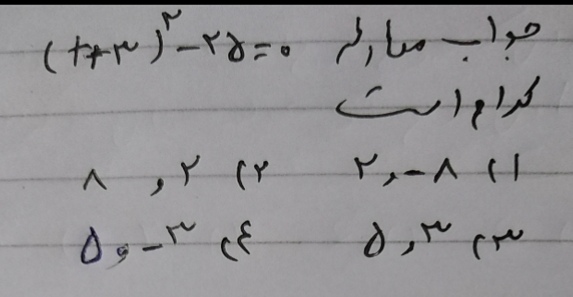 جواب معادله (x+۳)^۲ -۲۵=۰
کدام است
۱) ۸- , ۲   ۲) ۲ , ۸
۳) ۳ , ۵   ۴) ۳- و ۵